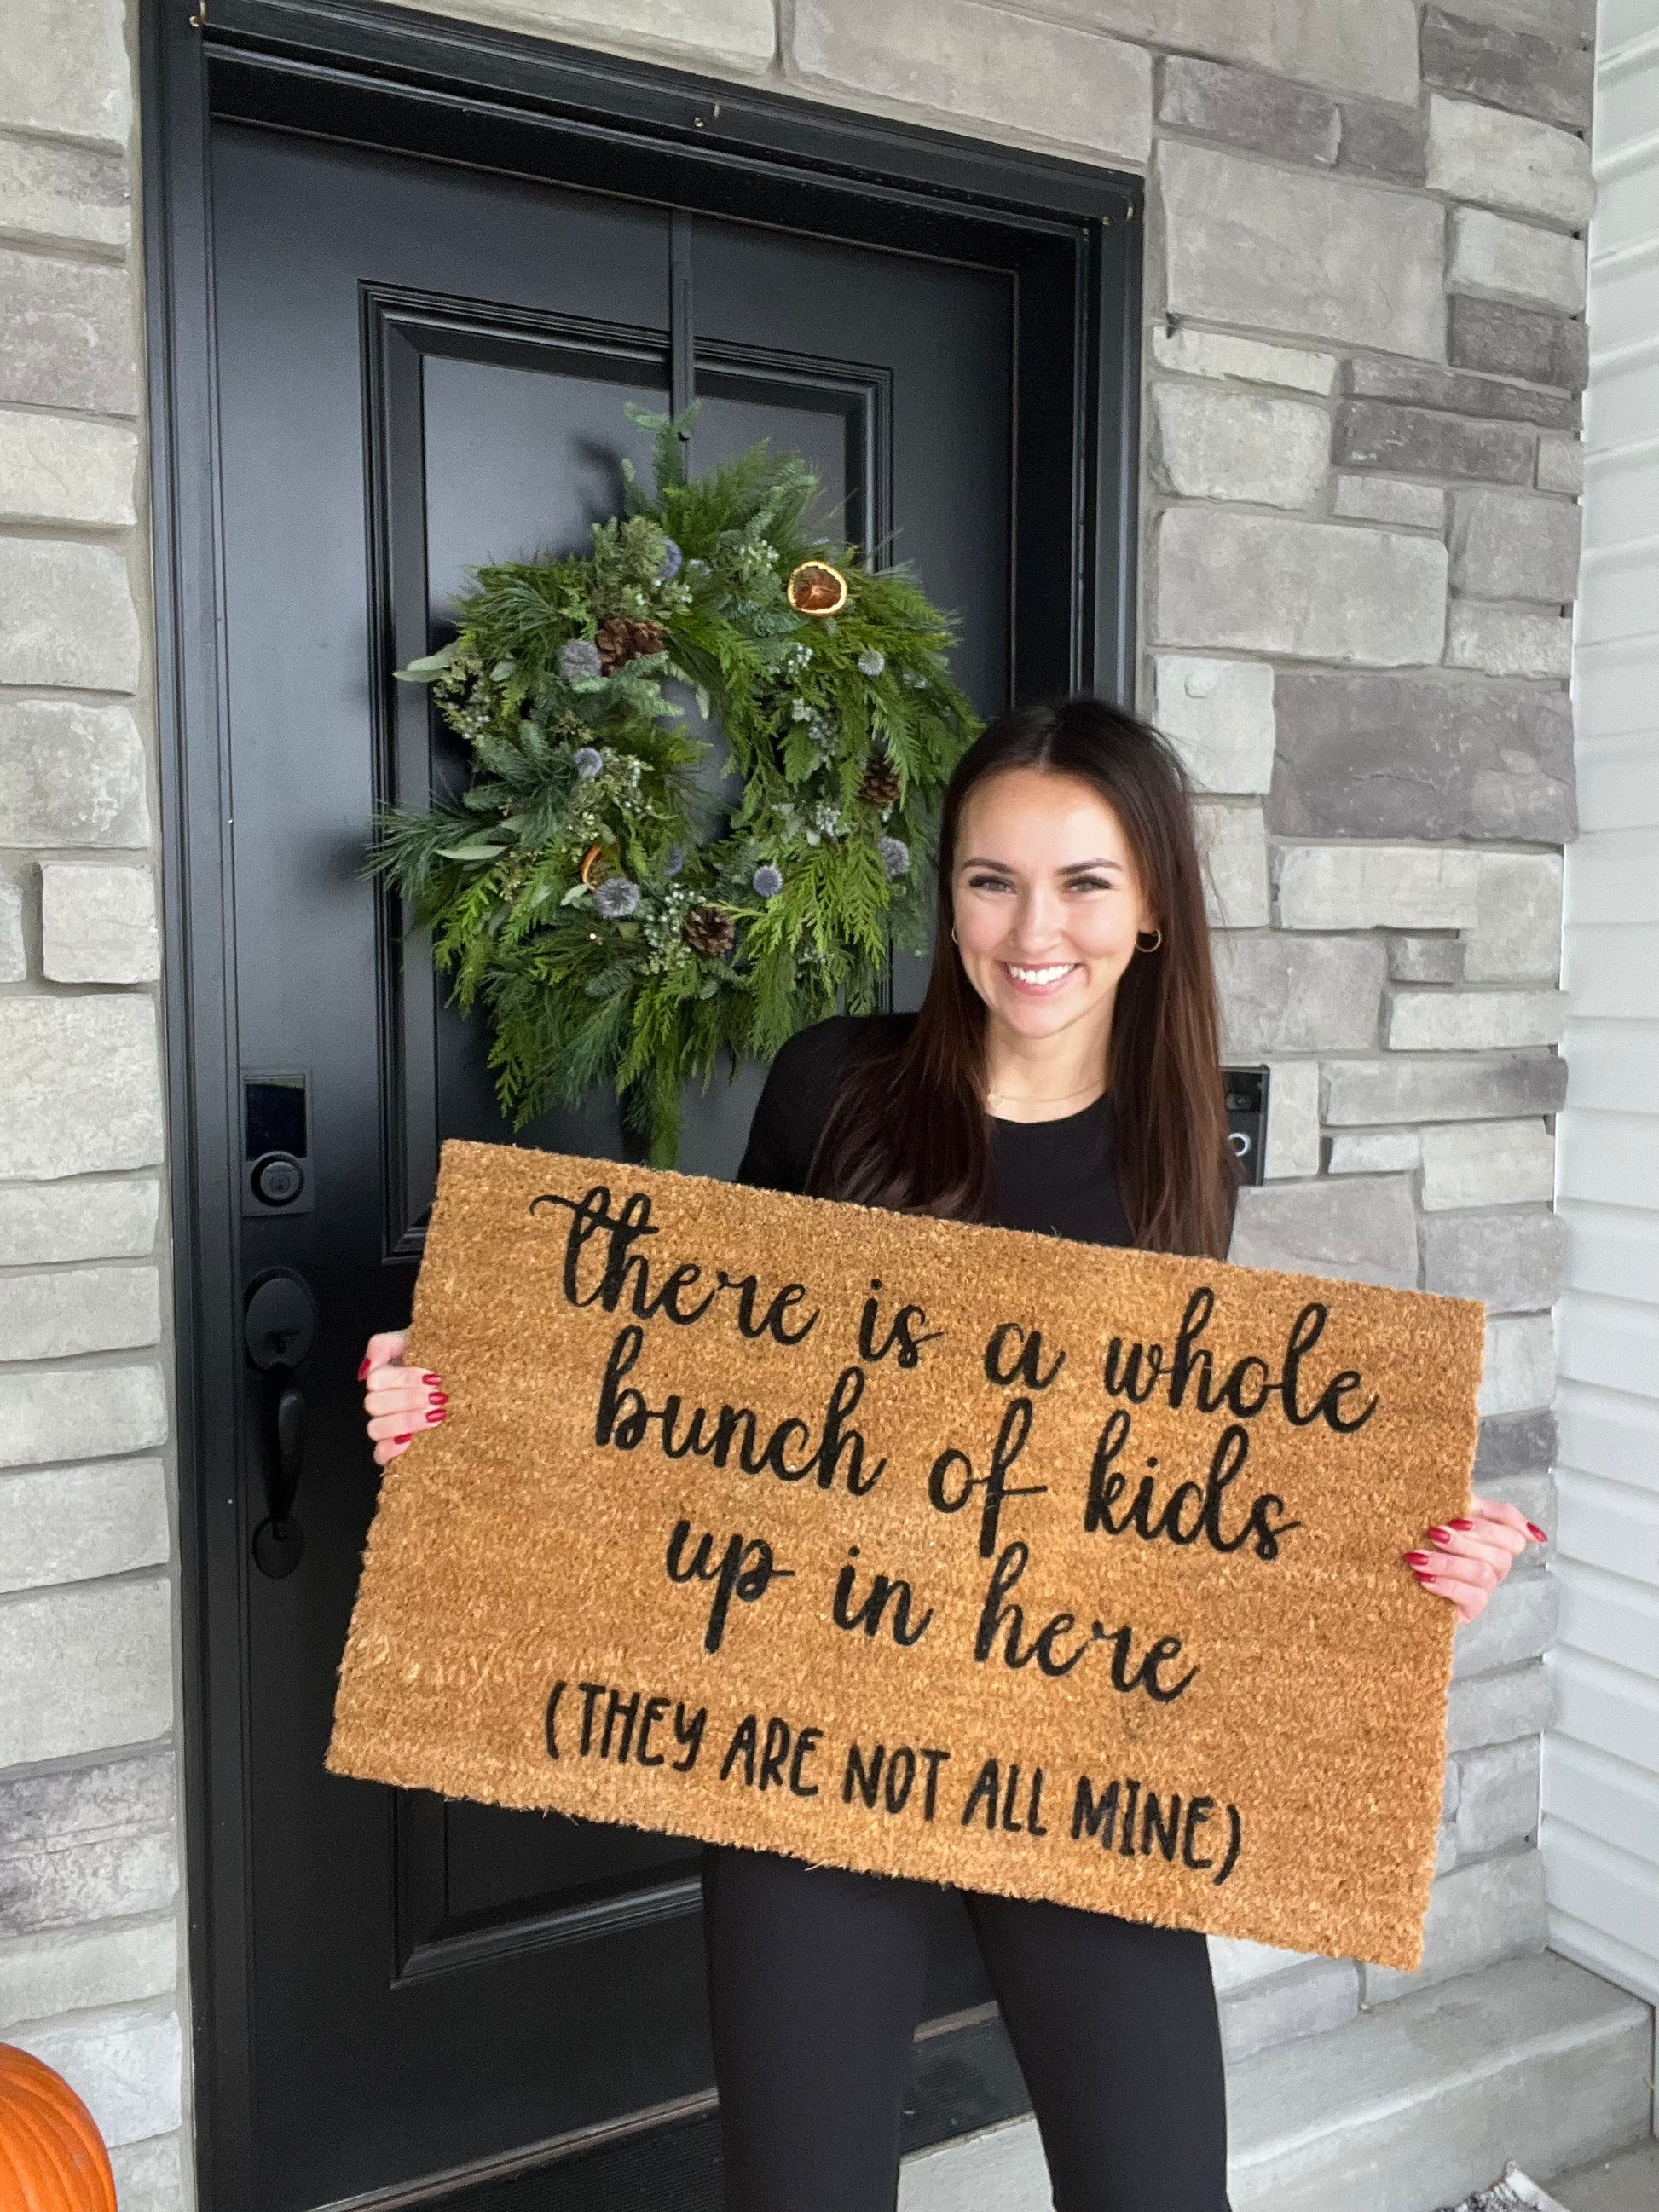 there is a whole
bunch of kids
up in here
(THEY ARE NOT ALL MINE)